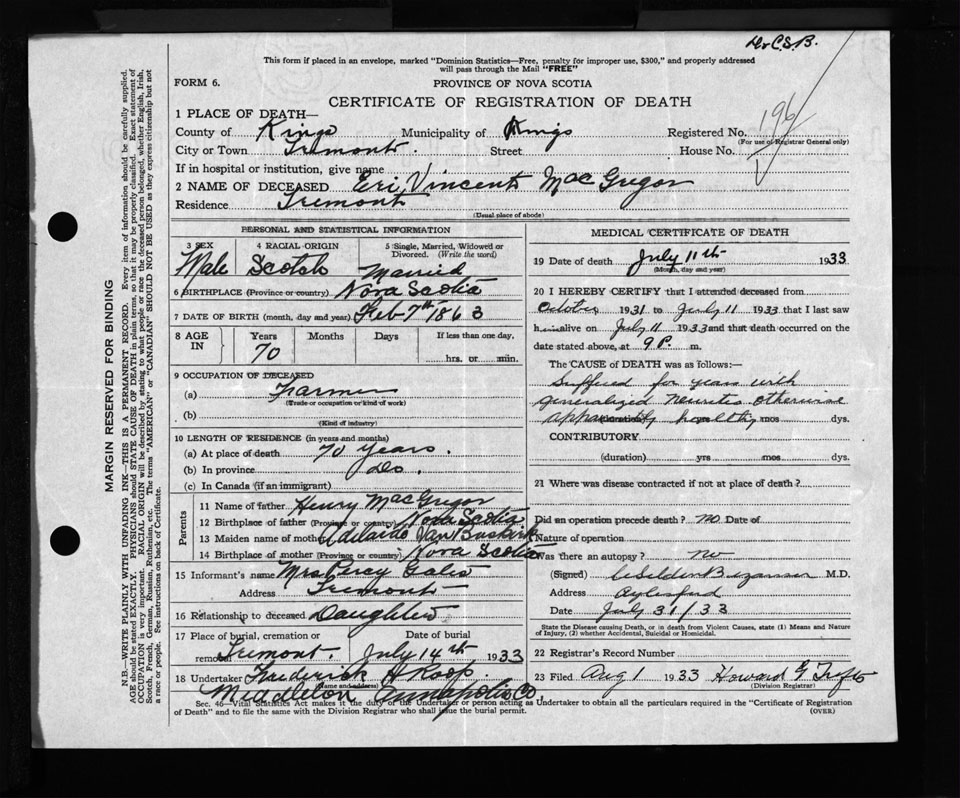 Dr C.S.B.
This form if placed in an envelope, marked "Dominion Statistics—Free, penalty for improper use, $300," and properly addressed
will pass through the Mail "FREE"
FORM 6.
PROVINCE OF NOVA SCOTIA
CERTIFICATE OF REGISTRATION OF DEATH
1 PLACE OF DEATH—
County of Kings Municipality of Kings Registered No. 196
(For use of Registrar General only)
City or Town Tremont Street House No.
If in hospital or institution, give name
2 NAME OF DECEASED Eri Vincent MacGregor
Residence Tremont
(Usual place of abode)
PERSONAL AND STATISTICAL INFORMATION
3 SEX 4 RACIAL ORIGIN 5 Single, Married, Widowed or
Divorced. (Write the word)
Male Scotch Married
6 BIRTHPLACE (Province or country) Nova Scotia
7 DATE OF BIRTH (month, day and year) Feb 7th 1863
8 AGE IN Years Months Days If less than one day,
70 hrs. or min.
9 OCCUPATION OF DECEASED
(a) Farmer
(Trade or occupation or kind of work)
(b)
(Kind of industry)
10 LENGTH OF RESIDENCE (in years and months)
(a) At place of death 70 years.
(b) In province Do.
(c) In Canada (if an immigrant)
Parents
11 Name of father Henry MacGregor
12 Birthplace of father (Province or country) Nova Scotia
13 Maiden name of mother Adelaide Van Buskirk
14 Birthplace of mother (Province or country) Nova Scotia
15 Informant's name Mrs Percy
Address Tremont
16 Relationship to deceased Daughter
17 Place of burial, cremation or Date of burial
removal Tremont. July 14th 1933
18 Undertaker Frederick H Roop.
(Name and address)
Middleton Annapolis Co
MEDICAL CERTIFICATE OF DEATH
19 Date of death July 11th 1933
(Month, day and year)
20 I HEREBY CERTIFY that I attended deceased from
October 1931 to July 11 1933 that I last saw
him alive on July 11 1933 and that death occurred on the
date stated above, at 9 P. m.
The CAUSE OF DEATH was as follows:—
Suffered for years with
generalized neuritis otherwise
apparently healthy
(duration) yrs mos dys.
CONTRIBUTORY
(duration) yrs mos dys.
21 Where was disease contracted if not at place of death?
Did an operation precede death? no Date of
Nature of operation
Was there an autopsy? no
(Signed) M.D.
Address Aylesford
Date July 31/33
State the Disease causing Death, or in death from Violent Causes, state (1) Means and Nature
of Injury, (2) whether Accidental, Suicidal or Homicidal.
22 Registrar's Record Number
23 Filed Aug 1 1933 Howard G
(Division Registrar)
Sec. 46—Vital Statistics Act makes it the duty of the Undertaker or person acting as Undertaker to obtain all the particulars required in the "Certificate of Registration
of Death" and to file the same with the Division Registrar who shall issue the burial permit. (OVER)
MARGIN RESERVED FOR BINDING
N.B.—WRITE PLAINLY WITH UNFADING INK—THIS IS A PERMANENT RECORD. Every item of information should be carefully supplied.
AGE should be stated EXACTLY. PHYSICIANS should STATE CAUSE OF DEATH in plain terms, so that it may be properly classified. Exact statement of
OCCUPATION is very important. RACIAL ORIGIN will be described by stating to what people or race the deceased person belonged, whether English, Irish,
Scotch, French, German, Russian, Ruthenian, etc. The terms "AMERICAN" or "CANADIAN" SHOULD NOT BE USED as they express citizenship but not
a race or people. See instructions on back of Certificate.